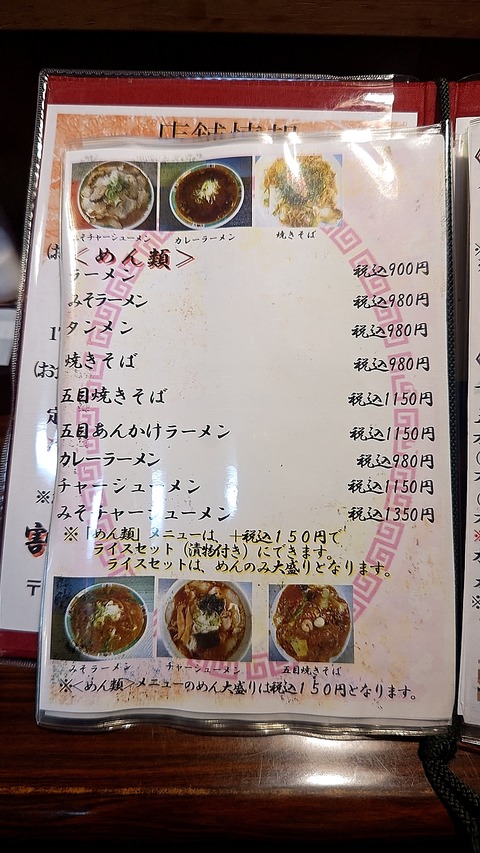 店舗情報
みそチャーシューメン
カレーラーメン
焼きそば
＜めん類＞
ラーメン 税込900円
みそラーメン 税込980円
タンメン 税込980円
焼きそば 税込980円
五目焼きそば 税込1150円
五目あんかけラーメン 税込1150円
カレーラーメン 税込980円
チャーシューメン 税込1150円
みそチャーシューメン 税込1350円
※「めん類」メニューは、＋税込１５０円で
ライスセット（漬物付き）にできます。
ライスセットは、めんのみ大盛りとなります。
みそラーメン
チャーシューメン
五目焼きそば
※＜めん類＞メニューのめん大盛りは税込１５０円となります。